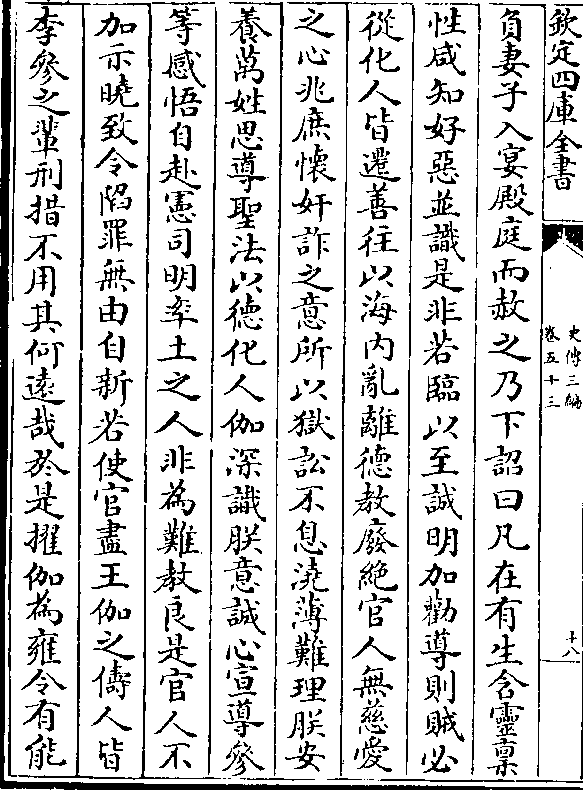 欽定四庫全書
史傳三編
卷五十三
十八
負妻子入宴殿庭而赦之乃下詔曰凡在有生含靈稟
性咸知好惡並識是非若臨以至誠明加勸導則賊必
從化人皆遷善往以海內亂離德教廢絶官人無慈愛
之心兆庶懷奸詐之意所以獄訟不息澆薄難理朕安
養萬姓思導聖法以德化人伽深識朕意誠心宣導參
等感悟自赴憲司明率土之人非為難教良是官人不
加示曉致令陷罪無由自新若使官盡王伽之儔人皆
李參之輩刑措不用其何遠哉於是擢伽為雍令有能